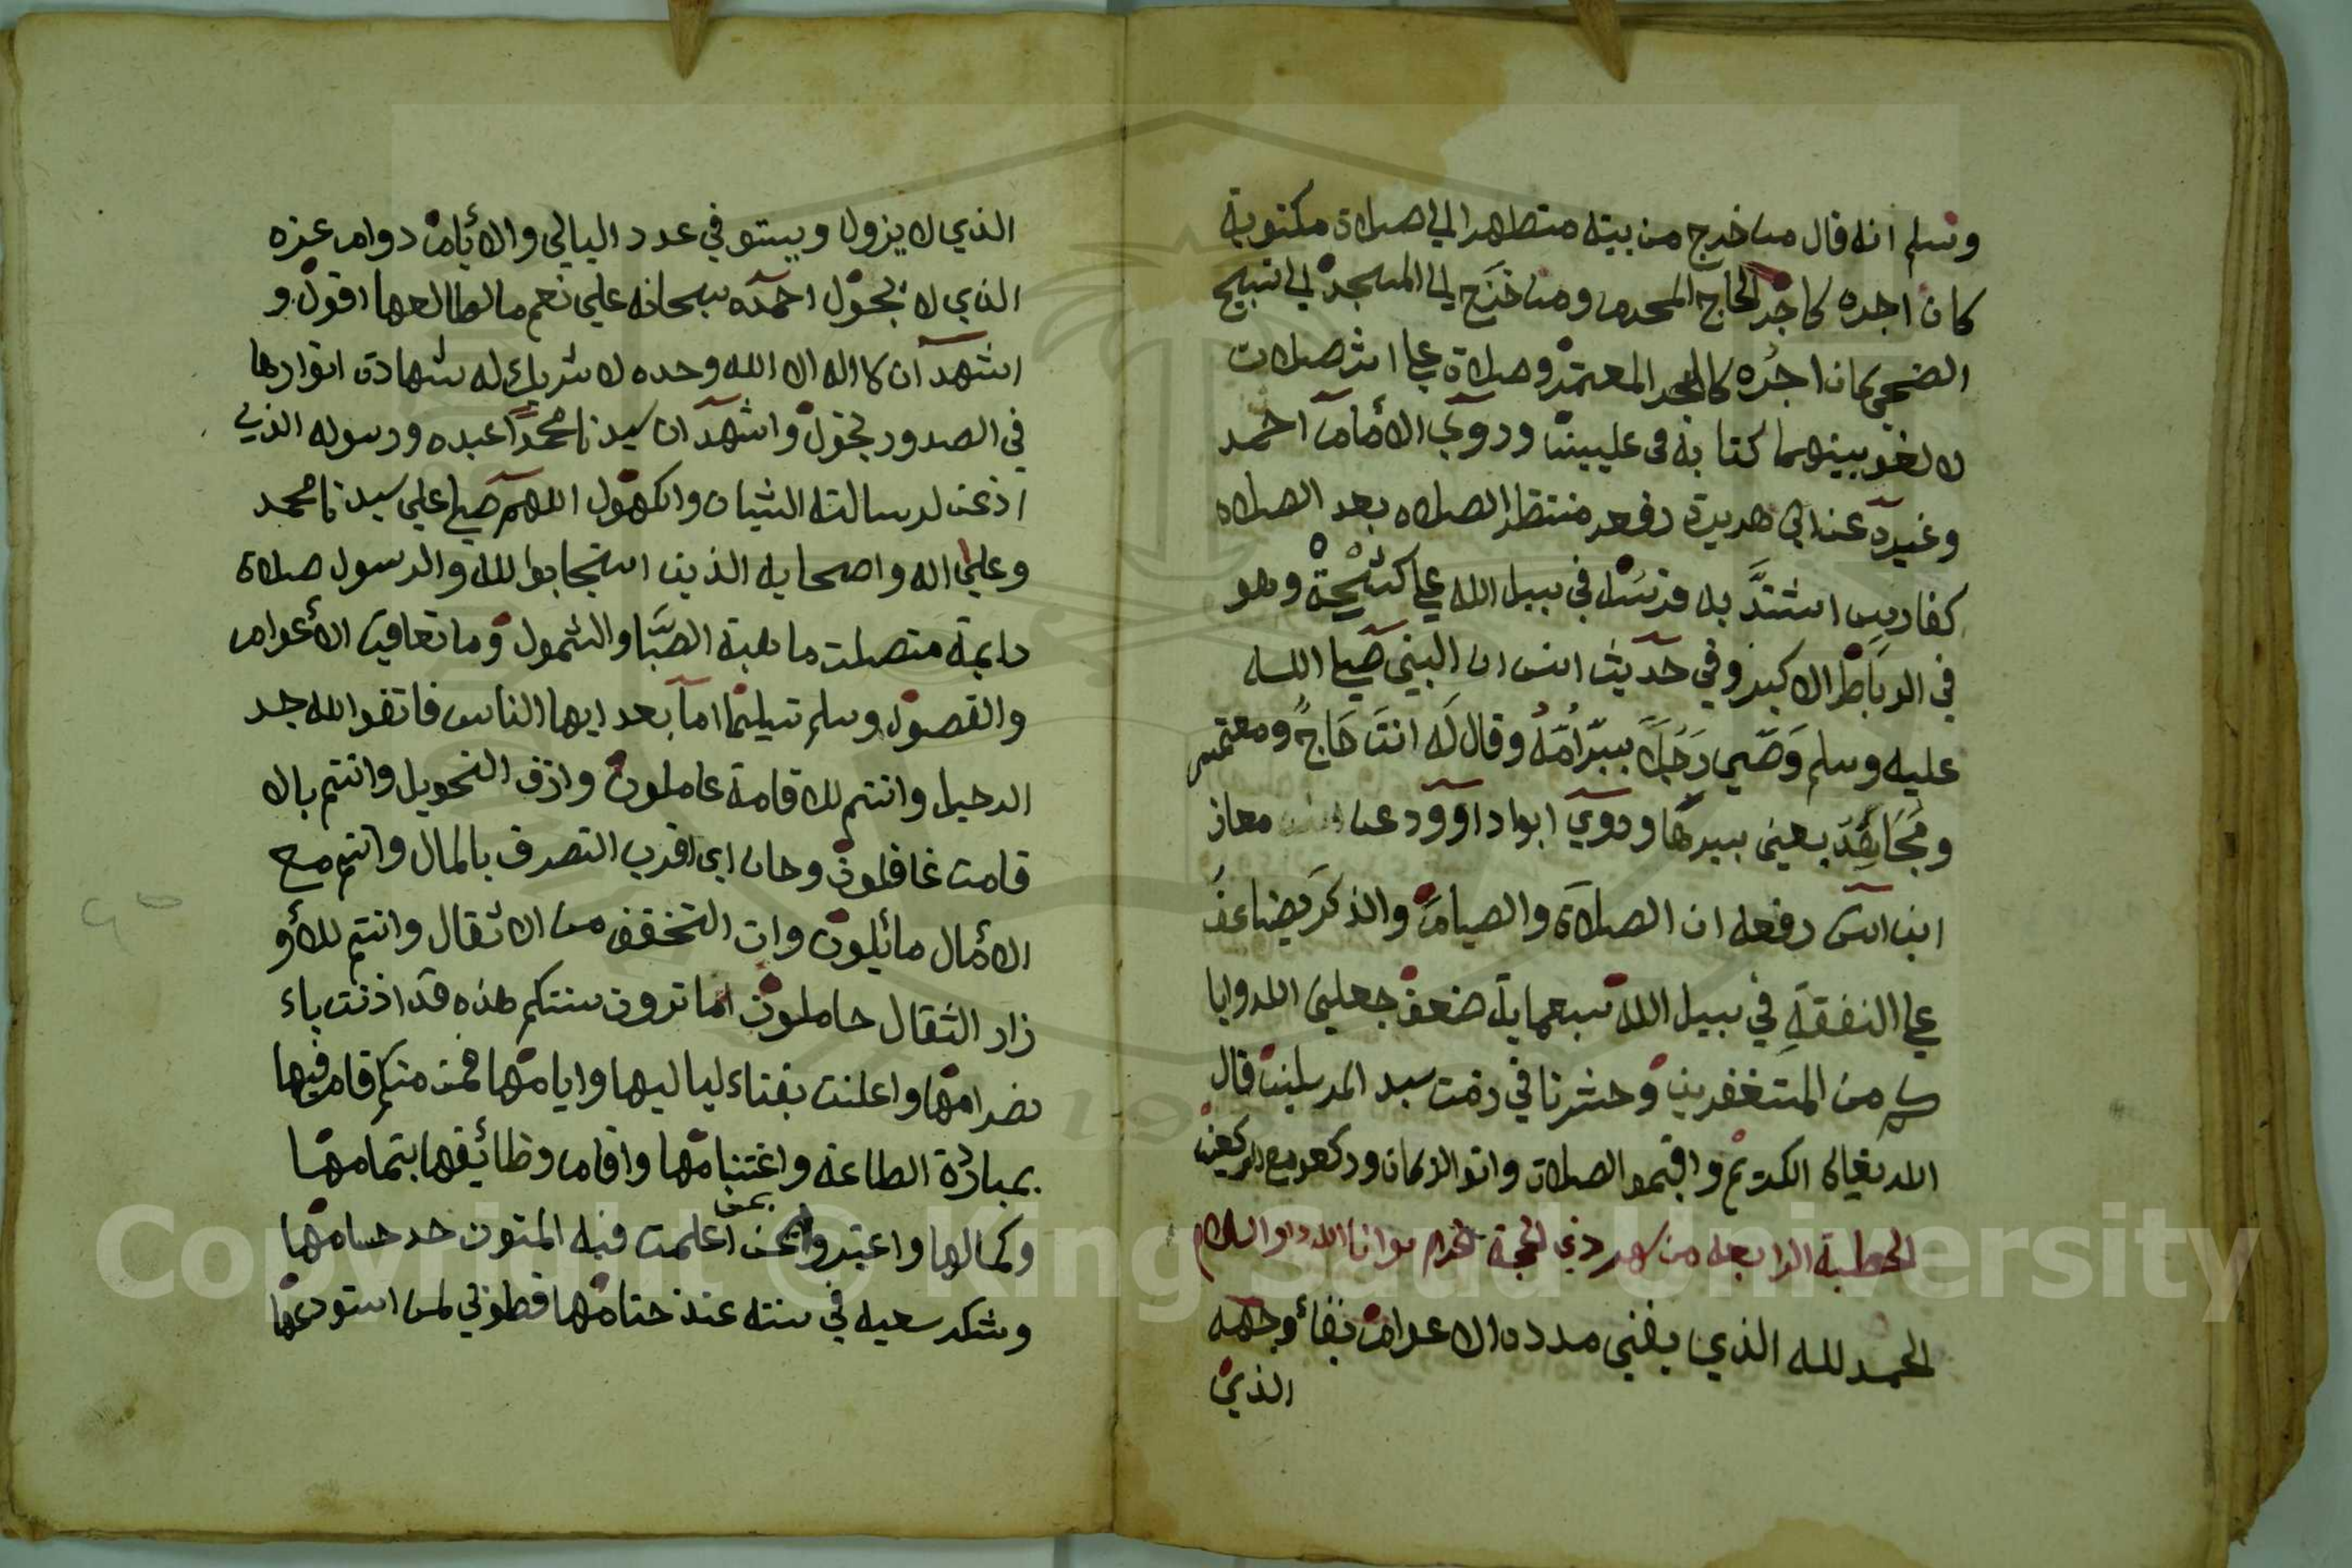 وسلم انه قال من خرج من بيته متطهرا الي صلاة مكتوبة
كان اجره كاجر الحاج المحرم ومن خرج الي المسجد لي تسبيح
الضحي كان اجره كالمعتمر وصلاة علي اثر صلات
لا لغو بينهما كتابة في عليين وروي الامام احمد
وغيره عن ابي هريرة رفعه منتظر الصلاه بعد الصلاه
كفارس اشتد به فرسه في سبيل الله علي كشحه وهو
في الرباط الاكبر وفي حديث انس ان النبي صلي الله
عليه وسلم وصي رجلا ببر امه وقال له انت حاج ومعتمر
ومجاهد يعني ببرها وروي ابوا داوود عن معاذ
ابن انس رفعه ان الصلاة والصيام والذكر يضاعف
علي النفقة في سبيل الله سبعماية ضعف جعلني الله وايا
كم من المستغفرين وحشرنا في زمت سيد المرسلين قال
الله تعالى الكريم واقيمو الصلات واتو الزكات وركعو مع الركعين
الخطبة الرابعه من شهر ذي الحجة الحرام
الحمد لله الذي يفني مدده الاعوام بقاؤجهه
الذي
الذي لا يزول ويستو في عدد اليالي والأيام دوام عزه
الذي لا يحول احمده سبحانه علي نعم ما لطالعها افول و
اشهد ان لا اله الا الله وحده لا شريك له شهادت انوارها
في الصدور تجول واشهد ان سيدنا محمدا عبده ورسوله الذي
اذعن لرسالته الشبان والكهول اللهم صلي علي سيدنا محمد
وعلي اله واصحابه الذين استجابوا لله والرسول صلاة
دايمة متصلت ما هبة الصبا والشمول وما تعاقبت الأعوام
والفصول وسلم تسليما اما بعد ايها الناس فاتقوا الله جد
الرحيل وانتم للاقامة عاملون وازف التحويل وانتم بالا
قامت غافلون وحان اي اقرب التصرف بالمال وانتم مع
الأمال مائلون وان التخفف من الاثقال وانتم للأو
زار الثقال حاملون اما ترون سنتكم هذه قد اذنت باء
نصرامها واعلنت بفناء لياليها وايامها فمن منكم قام فيها
بمبادرة الطاعة واغتنامها واقام وظائفها بتمامها
وكمالها واعتبروا بمن اعلمت فيه المنون حد حسامها
بمن
وشكر سعيه في سنته عند ختامها فطوبي لمن استودعها